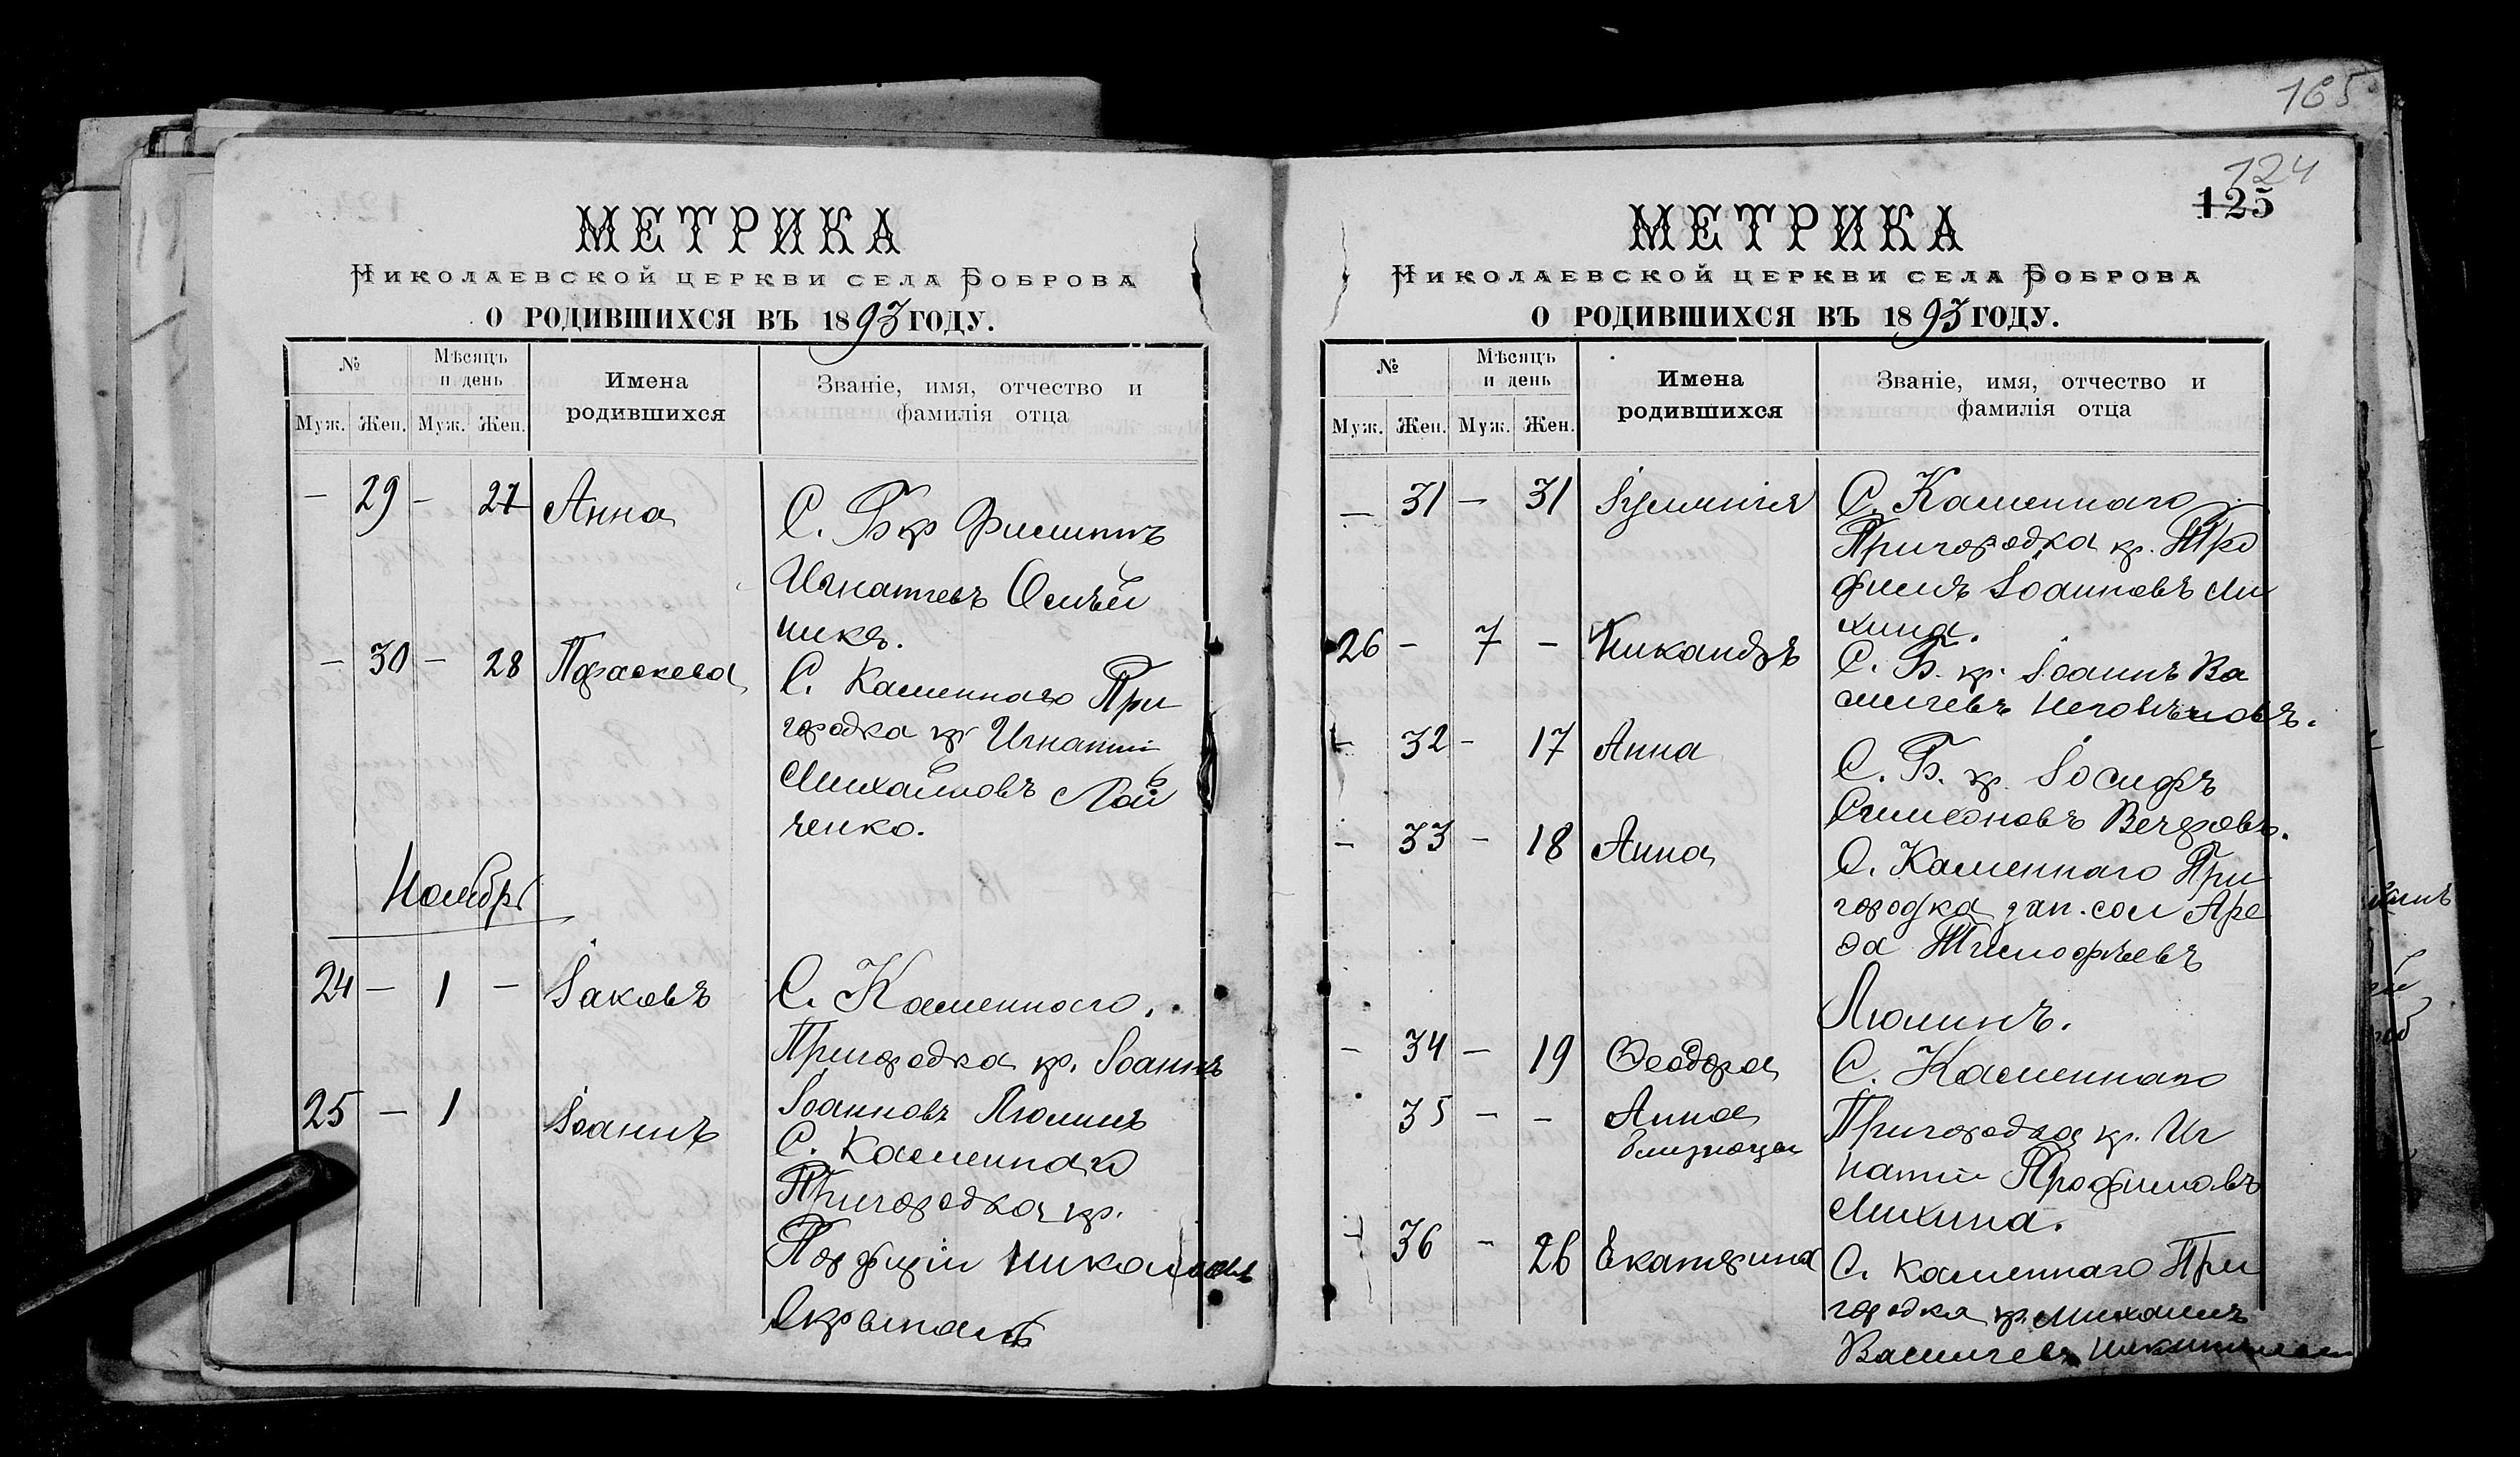 165
МЕТРИКА
Николаевской церкви села Боброва
О РОДИВШИХСЯ ВЪ 1893 ГОДУ.
№
Мѣсяцъ и день
Имена родившихся
Званіе, имя, отчество и фамилія отца
Муж. Жен. Муж. Жен.
– 29 – 27 Анна
С. Б кр Филиппъ
Игнатіевъ Олѣй
никъ.
– 30 – 28 Параскева
С. Каменнаго При
городка кр Игнатій
Михайловъ Лой
ченко.
Ноябрь
24 – 1 – Іаковъ
С. Каменнаго
Пригородка кр. Іоаннъ
Іоанновъ Люлинъ
25 – 1 Іоаннъ
С. Каменнаго
Пригородка кр.
Порфирій
124
125
МЕТРИКА
Николаевской церкви села Боброва
О РОДИВШИХСЯ ВЪ 1893 ГОДУ.
№
Мѣсяцъ и день
Имена родившихся
Званіе, имя, отчество и фамилія отца
Муж. Жен. Муж. Жен.
– 31 – 31 Іуліанія
С. Каменнаго
Пригородка кр. Тро
фимъ Іоанновъ Ми
хина.
26 – 7 – Никандръ
С. Б. кр. Іоаннъ Ва
сильевъ
– 32 – 17 Анна
С. Б. кр. Іосифъ
Симеоновъ
– 33 – 18 Анна
С. Каменнаго При
городка зап. сол Аре
ѳа Тимоѳѣевъ
Люлинъ.
– 34 – 19 Ѳеодора
С. Каменнаго
35 – – Анна
близнецы
Пригородка кр. Иг
натій Трофимовъ
Михина.
– 36 – 26 Екатерина
С. Каменнаго При
городка кр. Михаилъ
Васильевъ